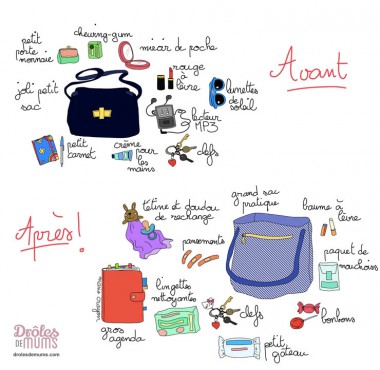 petit
porte
monnaie
chewing-gum
miroir de poche
rouge
à
lèvre
Avant
joli petit
sac
lunettes
de
soleil
lecteur
MP3
petit
carnet
crème
pour
les
mains
clefs
Après!
tétine et doudou
de rechange
grand sac
pratique
baume à
lèvre
pansements
paquet de
mouchoirs
lingettes
nettoyantes
clefs
bonbons
gros
agenda
petit
gâteau
DRÔLES
DE MUMS
drolesdemums.com